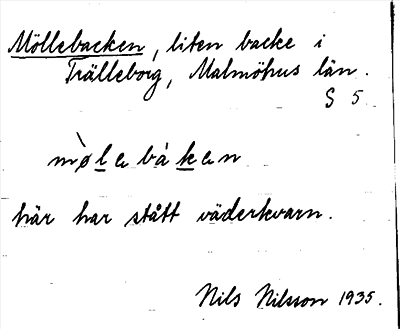 Möllebacken, liten backe i
Trälleborg, Malmöhus län.
S 5.
mø̀lebáken
här har stått väderkvarn.
Nils Nilsson 1935.